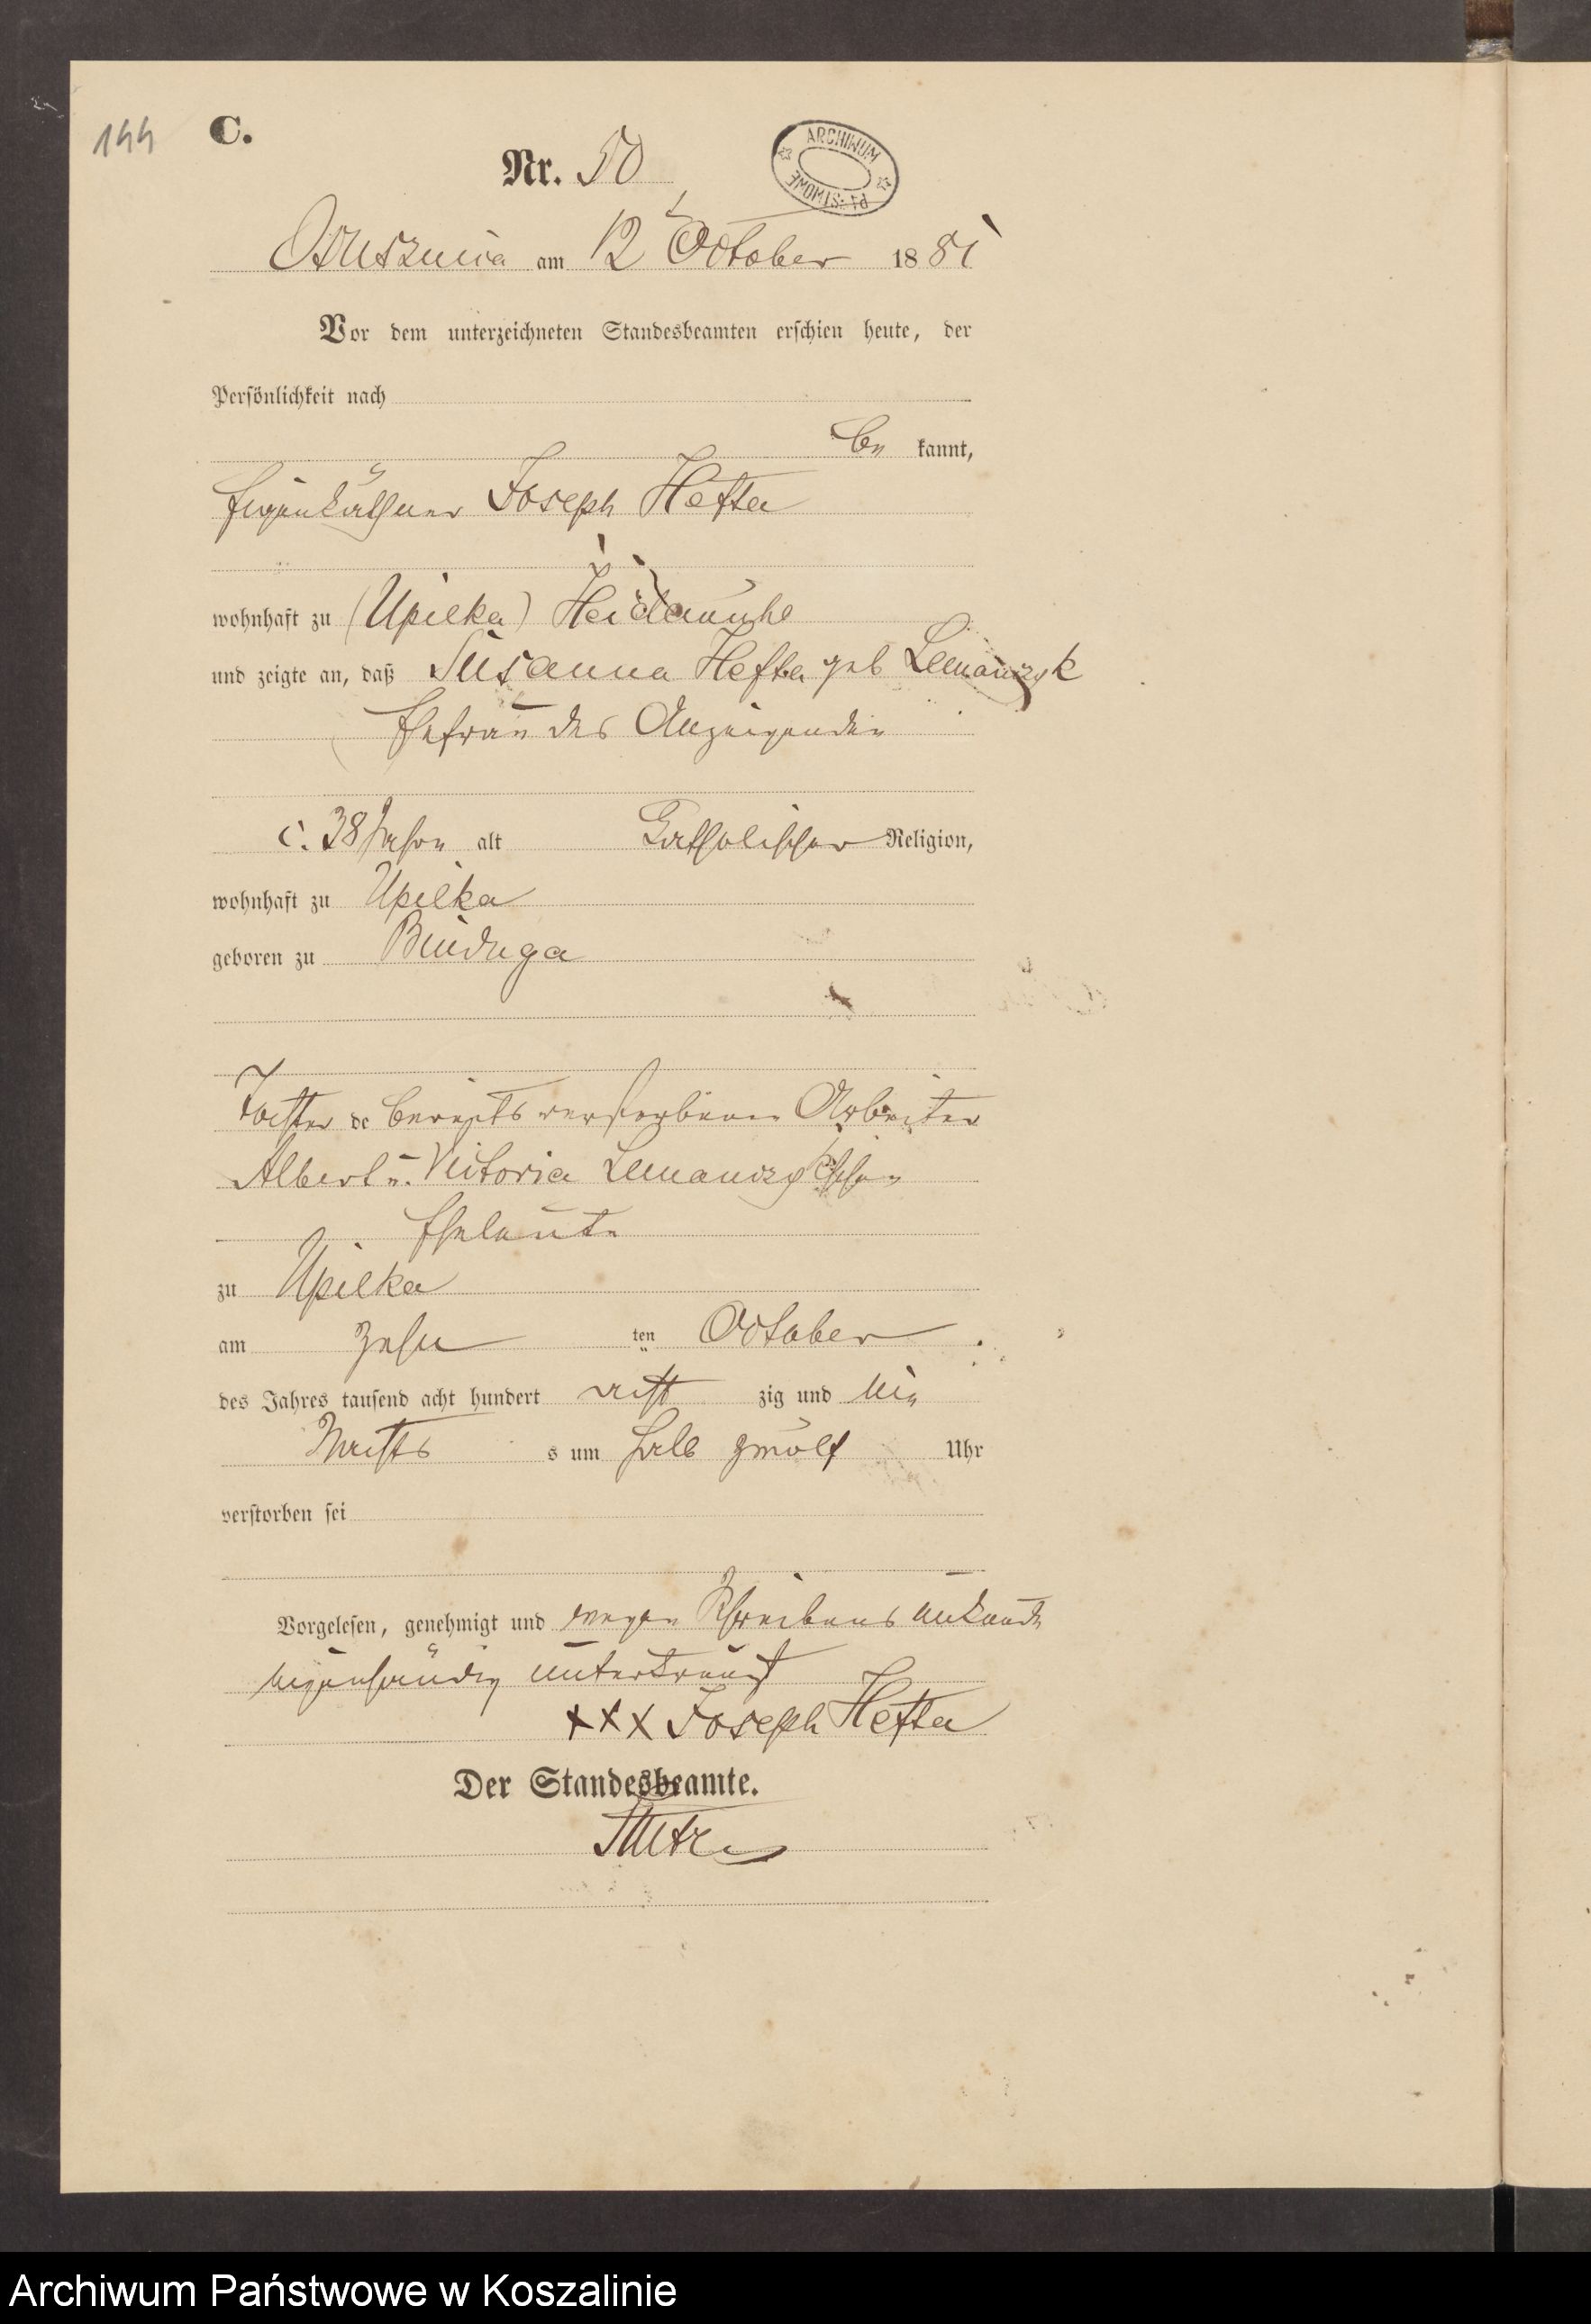 144
C.
Nr. 50
ARCHIWUM
Ossusznica am 12 October 1881
Vor dem unterzeichneten Standesbeamten erschien heute, der
Persönlichkeit nach
be kannt,
Eigenkäthner Joseph Hefta
wohnhaft zu (Upilka)
und zeigte an, daß Susanna Hefta geb Lemanczyk
Ehefrau des Anzeigenden
c. 38 Jahre alt Catholischer Religion,
wohnhaft zu Upilka
geboren zu Binduga
Tochter de bereits verstorbenen Arbeiter
Albert u. Victoria Lemanczykschen
Eheleute
zu Upilka
am zehn ten October
des Jahres tausend acht hundert acht zig und ein
Nachts s um halb zwölf Uhr
verstorben sei
Vorgelesen, genehmigt und wegen Schreibens unkunde
eigenhändig unterkreuzt
xxx Joseph Hefta
Der Standesbeamte.
Archiwum Państwowe w Koszalinie